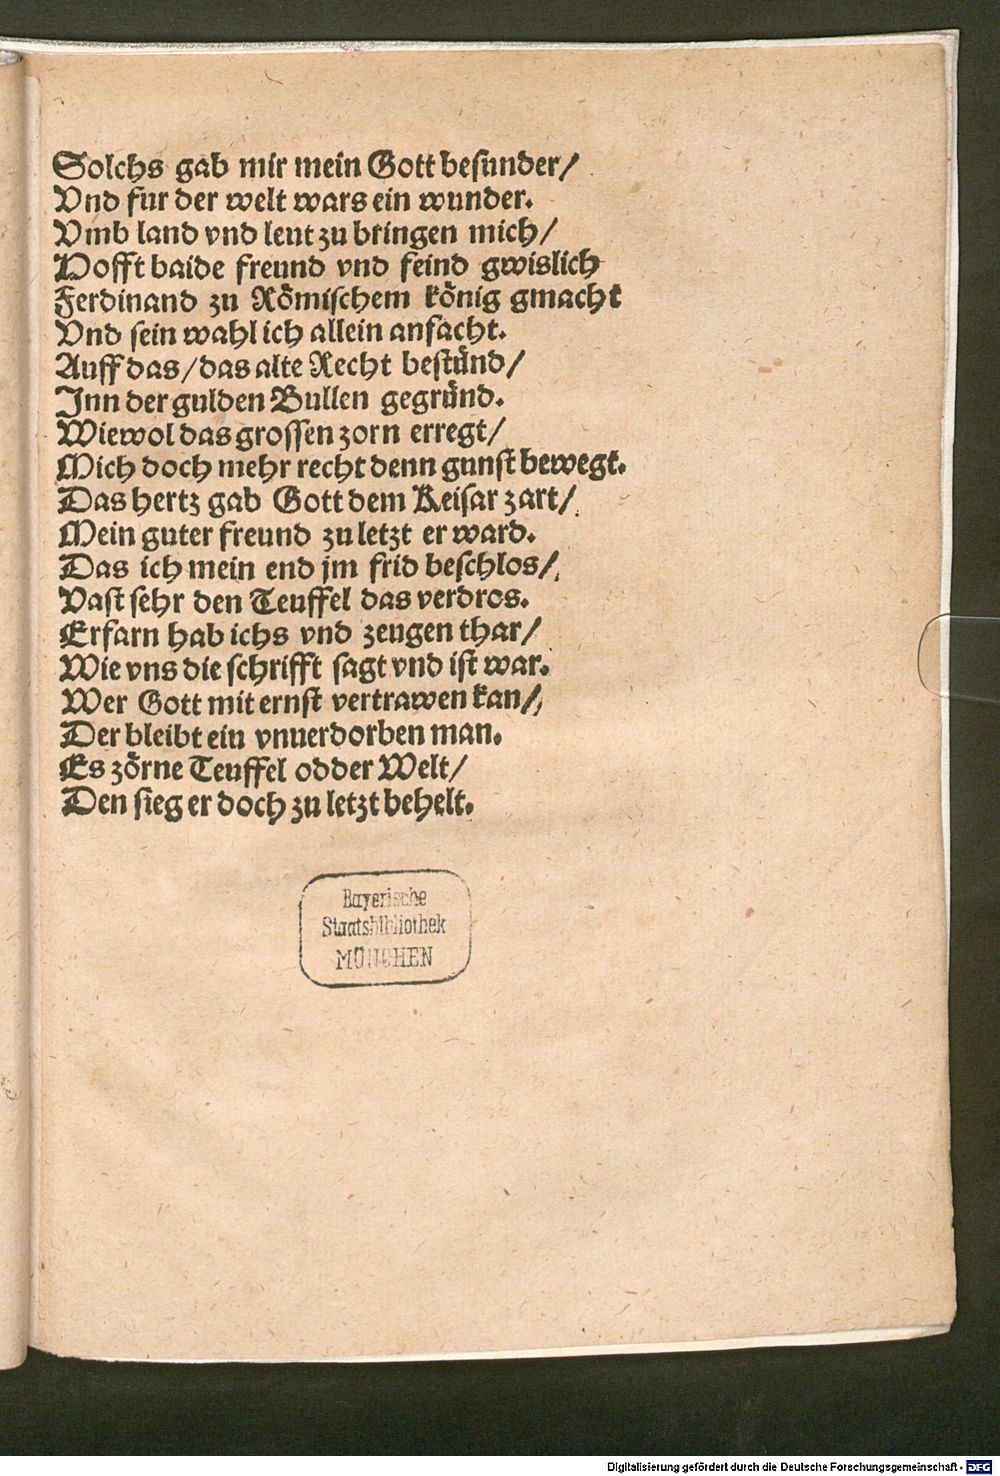 Solchs gab mir mein Gott besunder/
Vnd fur der welt wars ein wunder.
Vmb land vnd leut zu bringen mich/
Hofft baide freund vnd feind gwislich
Ferdinand zu Römischem könig gmacht
Vnd sein wahl ich allein anfacht.
Auff das/das alte Recht bestünd/
Inn der gulden Bullen gegründ.
Wiewol das grossen zorn erregt/
Mich doch mehr recht denn gunst bewegt.
Das hertz gab Gott dem Keisar zart/
Mein guter freund zu letzt er ward.
Das ich mein end jm frid beschlos/
Vast sehr den Teuffel das verdros.
Erfarn hab ichs vnd zeugen thar/
Wie vns die schrifft sagt vnd ist war.
Wer Gott mit ernst vertrawen kan/
Der bleibt ein vnuerdorben man.
Es zörne Teuffel odder Welt/
Den sieg er doch zu letzt behelt.
Bayerische
Staatsbibliothek
MÜNCHEN
Digitalisierung gefördert durch die Deutsche Forschungsgemeinschaft - DFG